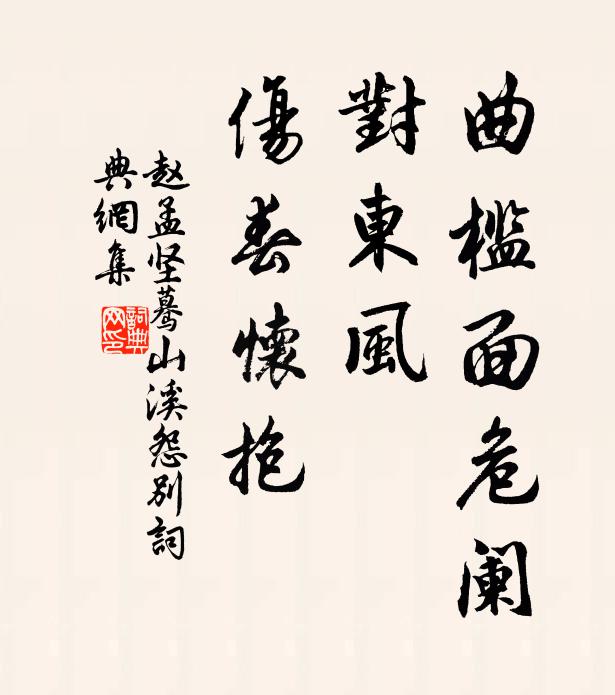 曲槛面危阑
對東風
傷春懷抱
赵孟坚蓦山溪怨别詞
典網集
詞典网印